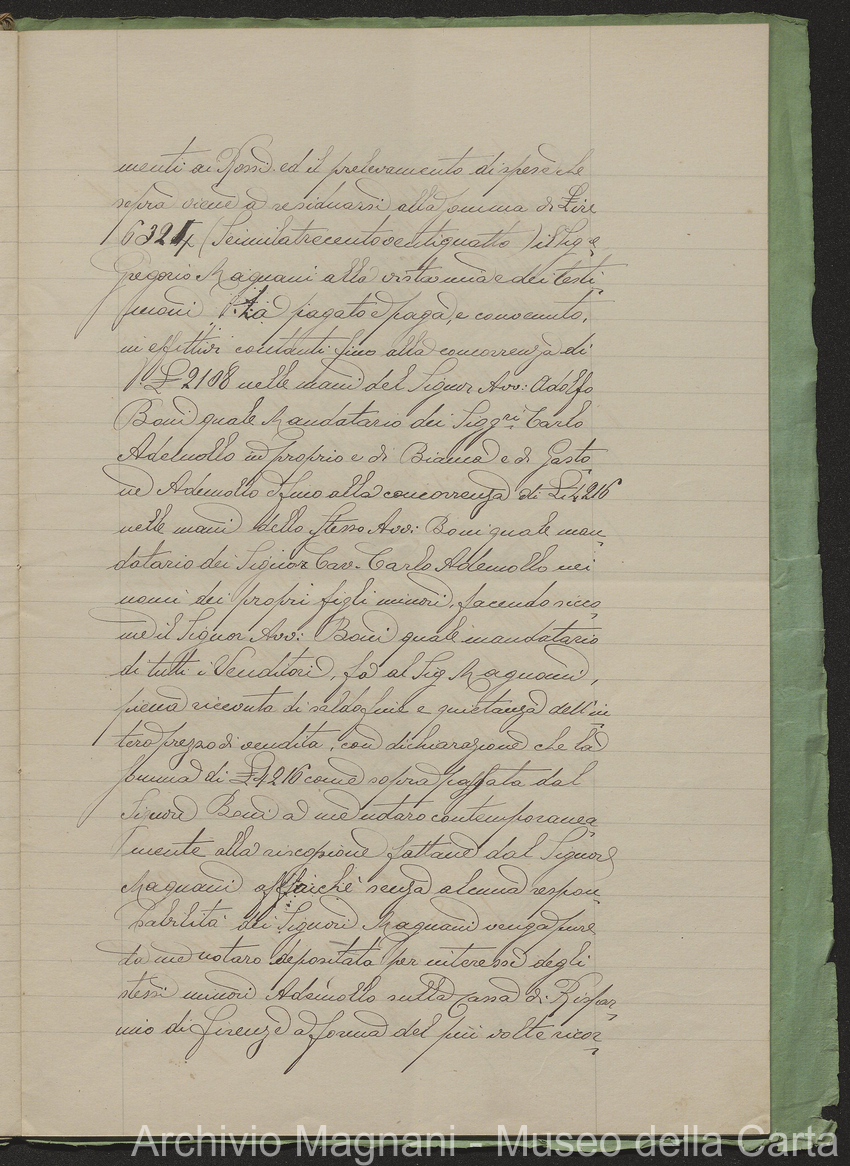 menti ai Rossi ed il prelevamento di spese che
sopra viene a residuarsi alla somma di Lire
6324 (Seimilatrecentoventiquattro) il Sig.e
Gregorio Magnani alla vista mia e dei testi=
moni ha pagato e paga, e convenuto,
in effettivi contanti fino alla concorrenza di
£ 2108 nelle mani del Signor Avv: Adolfo
Boni quale Mandatario dei Sigg.ri Carlo
Ademollo in proprio e di Bianca e di Gasto
ne Ademollo e fino alla concorrenza di £ 4216
nelle mani dello stesso Avv: Boni quale man=
datario dei Signor Cav. Carlo Ademollo nei
nomi dei propri figli minori, facendo sicco=
me il Signor Avv: Boni quale mandatario
di tutti i Venditori, fa al Sig Magnani,
piena ricevuta di saldo fine e quietanza dell'in=
tero prezzo di vendita, con dichiarazione che la
somma di £ 4216 come sopra passata dal
Signore Boni a me notaro contemporanea=
mente alla riscossione fattane dal Signore
Magnani affinchè senza alcuna respon=
sabilità dei Signori Magnani venga pure
da me notaro depositata per interesse degli
stessi minori Ademollo sulla Cassa di Rispar=
mio di Firenze a forma del più volte ricor=
Archivio Magnani - Museo della Carta